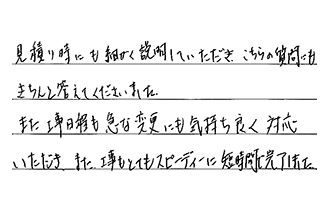 見積り時にも細かく説明していただき、こちらの質問にも
きちんと答えてくださいました。
また工事日程も急な変更にも気持ち良く対応
いただき、また、工事もとてもスピーディーに短時間で完了しました。